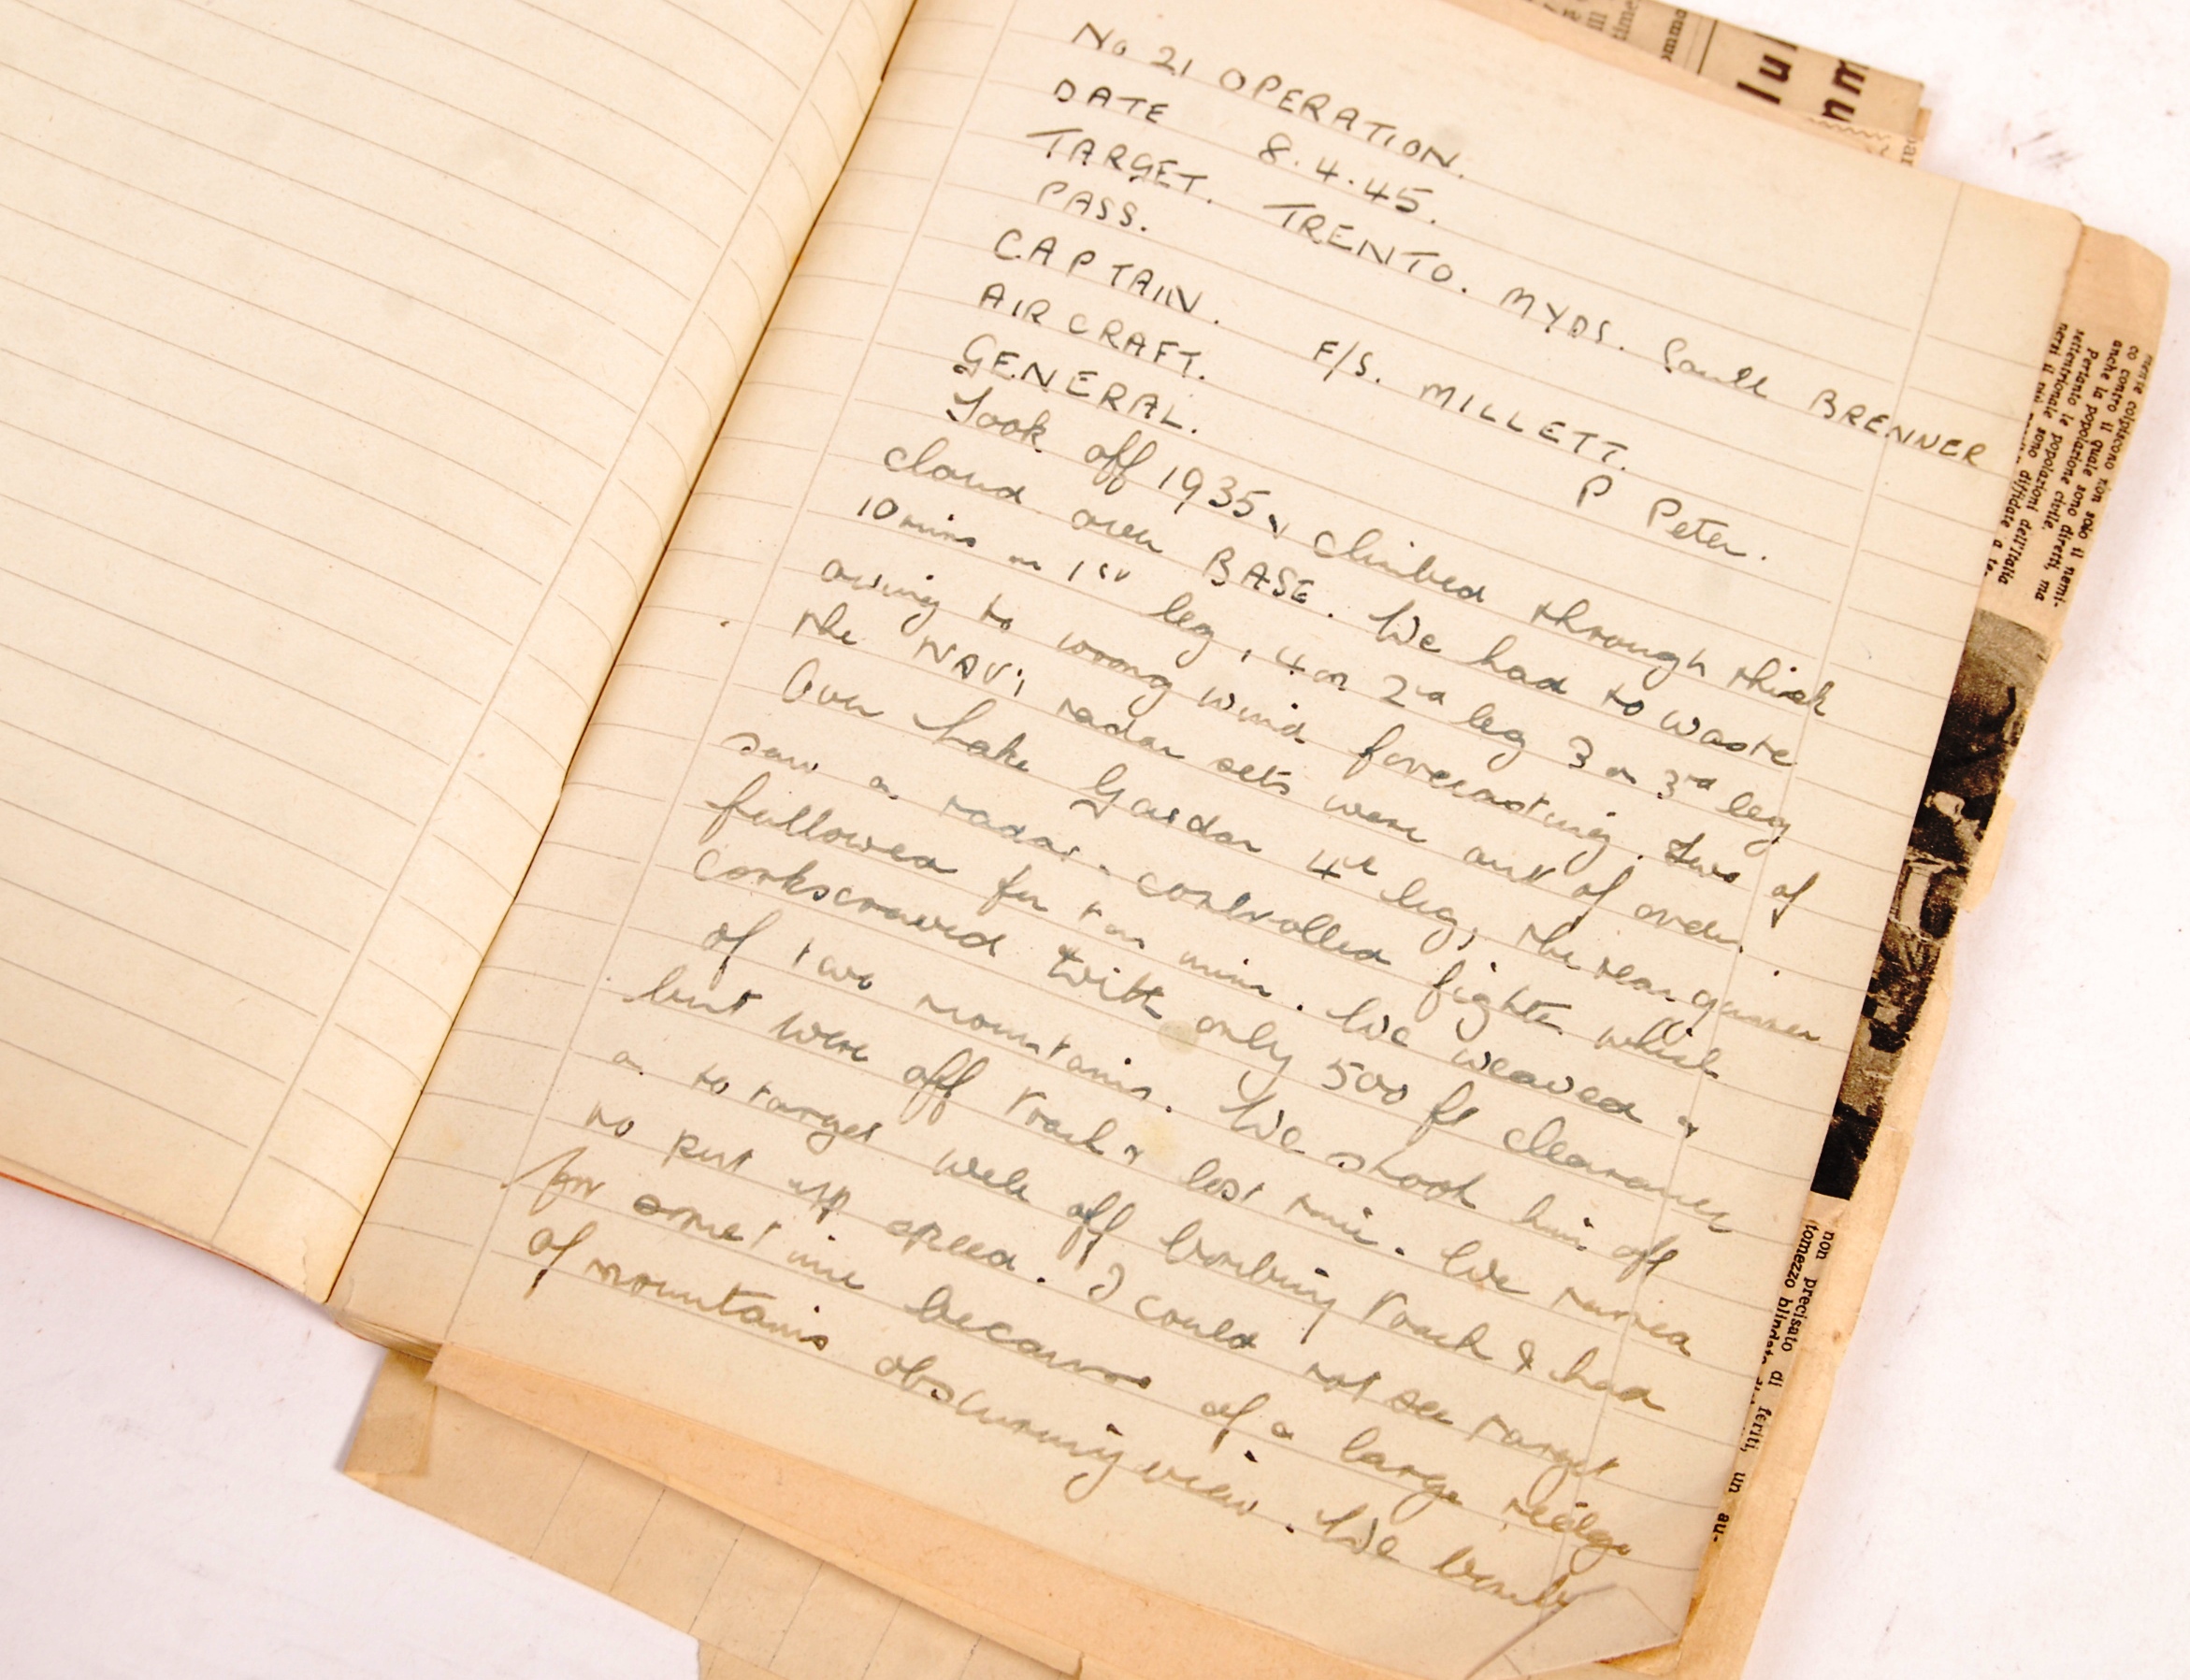 No 21 OPERATION.
DATE 8.4.45.
TARGET. TRENTO. MYDS. South BRENNER
PASS.
CAPTAIN. F/S. MILLETT.
AIRCRAFT. P Peter.
GENERAL.
Took off 1935 & climbed through thick
cloud over BASE. We had to waste
10 mins on 1st leg, 4 on 2nd leg 3 on 3rd leg
owing to wrong wind forecasting. Two of
the NAV; radar sets were out of order.
Over Lake Gardar 4th leg, the rear gunner
saw a radar-controlled fighter which
followed for ten mins. We weaved &
corkscrewed with only 500 ft clearance
of two mountains. We shook him off
but were off track & lost time. We turned
on to target well off bombing track & had
to put up speed. I could not see target
for sometime because of a large reidge
of mountains obscuring view. We bomb
lul
nm
mense colpiscono non solo il nemi-
co contro il quale sono diretti, ma
anche la popolazione civile.
Pertanto le popolazioni dell'Italia
settentrionale sono diffidate a te-
nersi il più
non precisato di feriti, un au-
tomezzo blindato